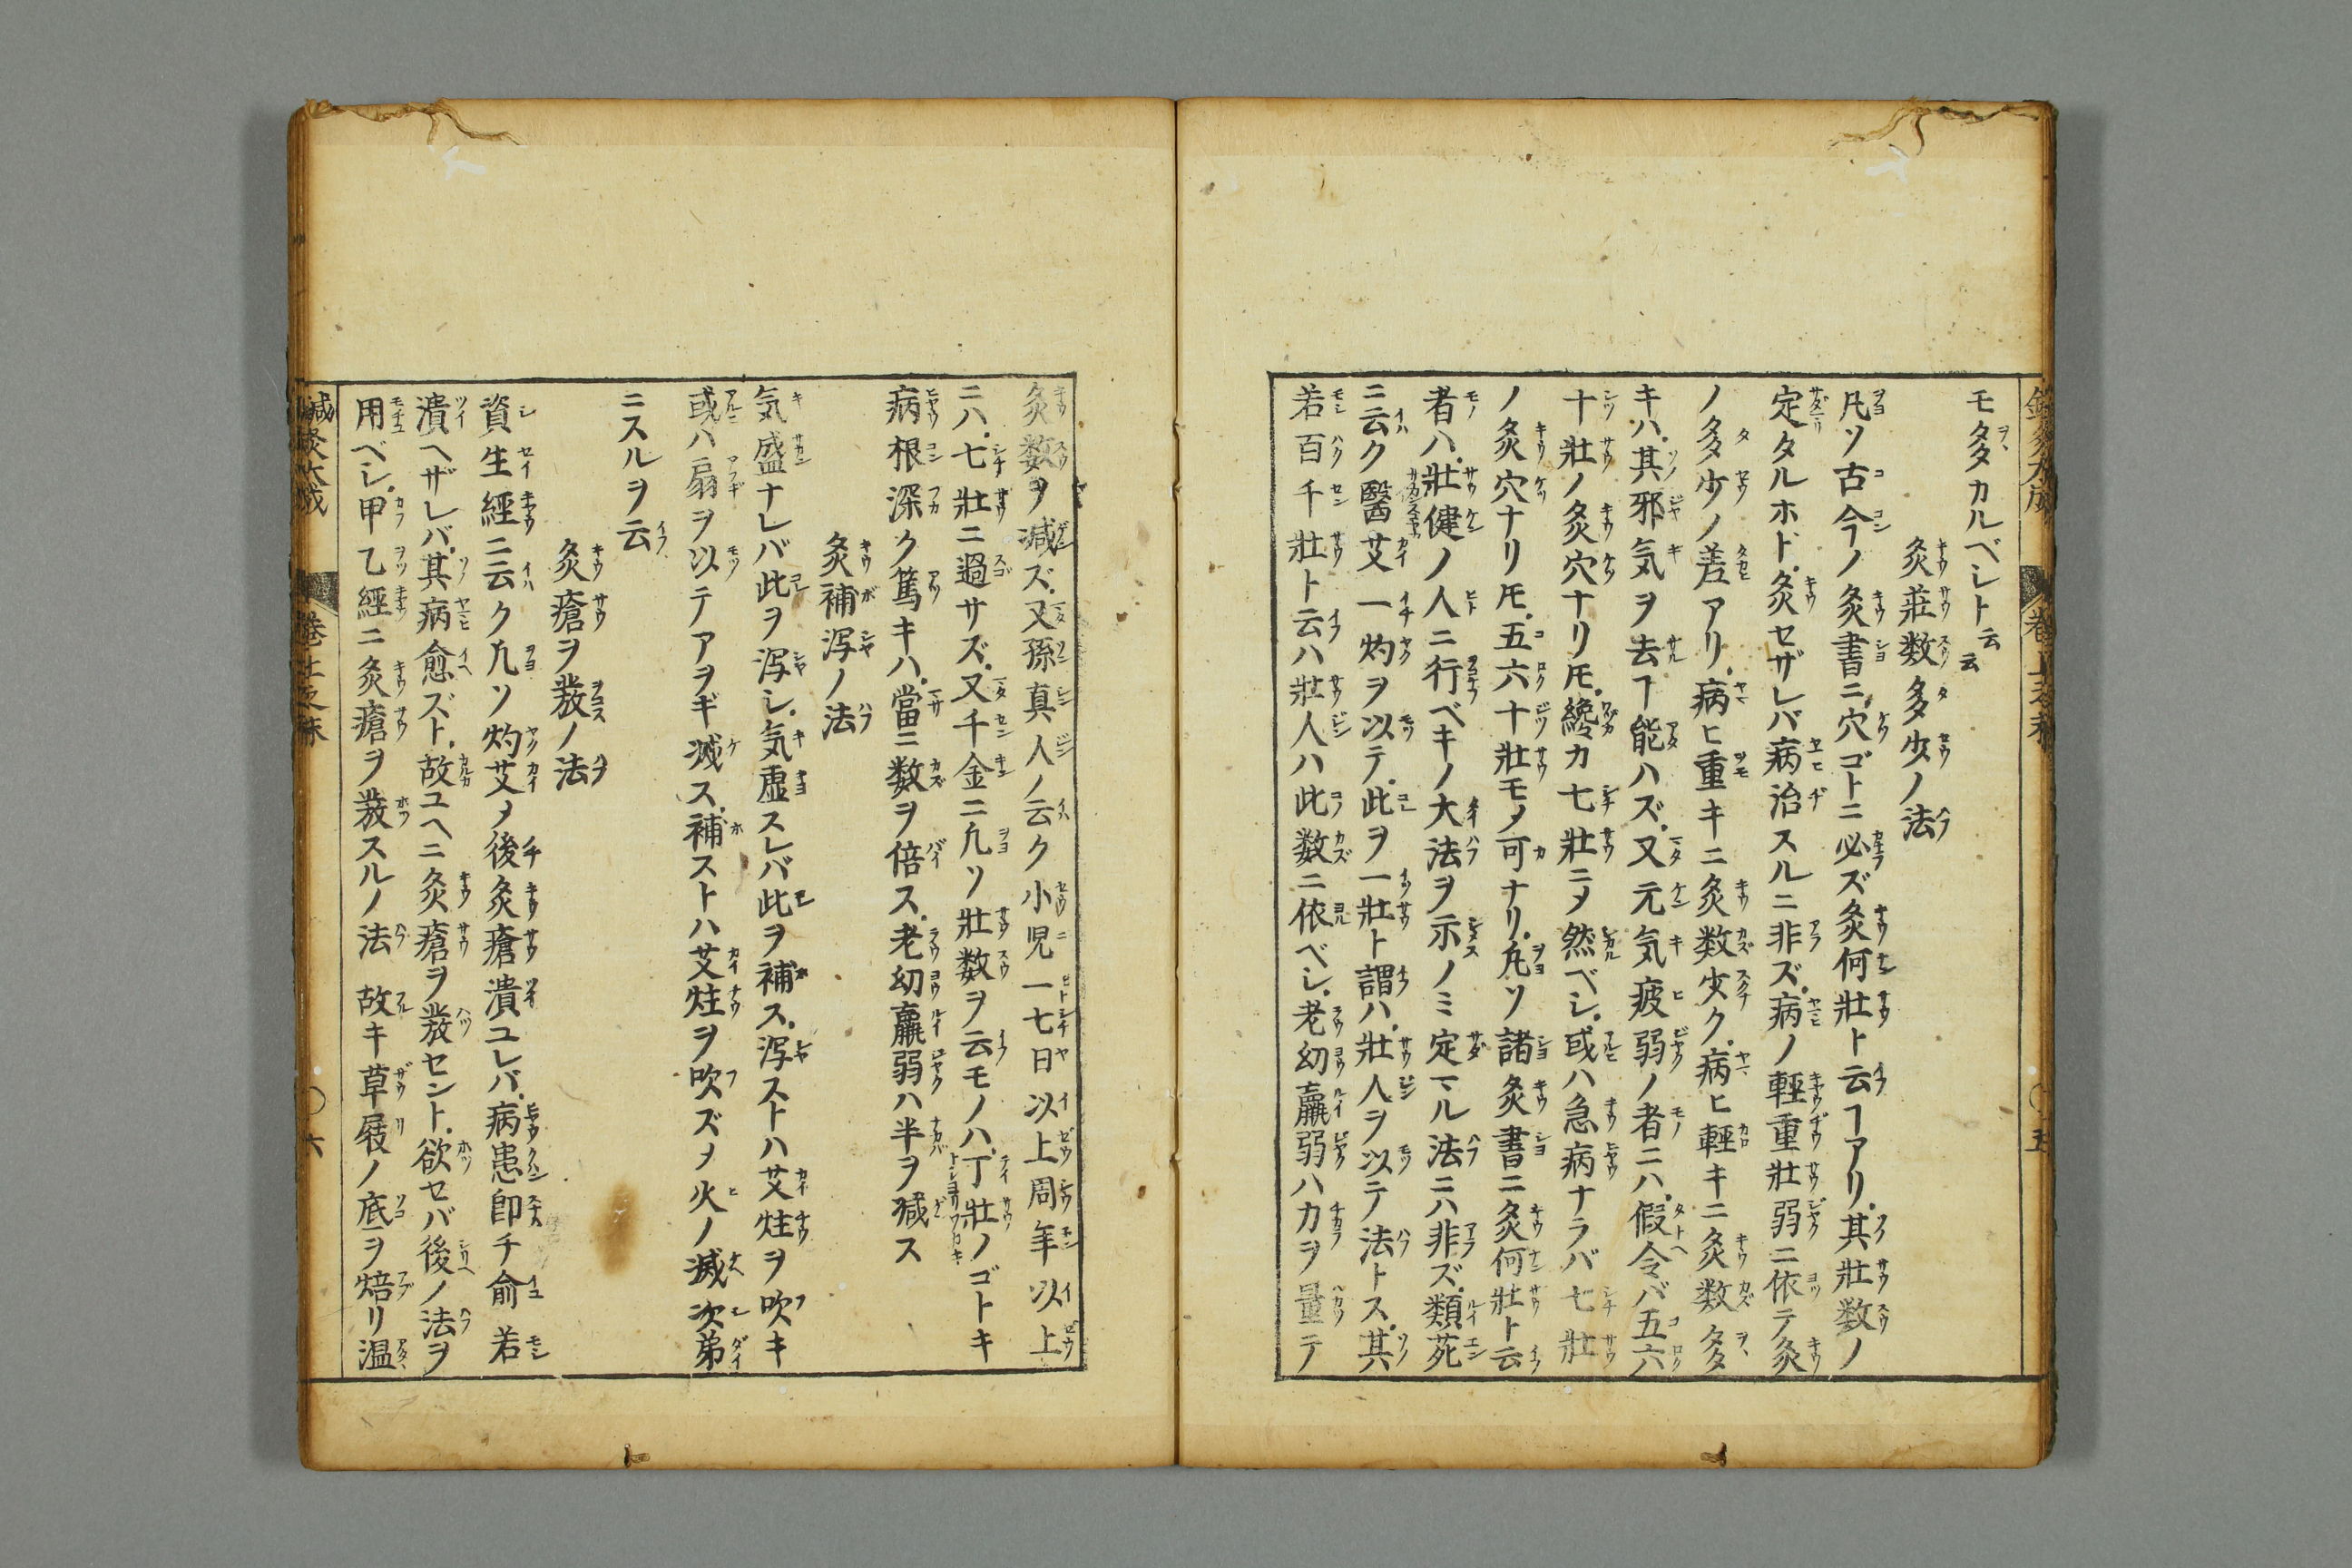 モ多カルベシト云云
灸莊数多少ノ法
凡ソ古今ノ灸書ニ穴ゴトニ必ズ灸何壯ト云ヿアリ其壯数ノ
定タルホド灸セザレバ病治スルニ非ズ病ノ輕重壯弱ニ依テ灸
ノ多少ノ差アリ病ヒ重キニ灸数少ク病ヒ輕キニ灸数多
キハ其邪気ヲ去ヿ能ハズ又元気疲弱ノ者ニハ假令バ五六
十壯ノ灸穴ナリ𪜈纔カ七壯ニメ然ベシ或ハ急病ナラバ七壯
ノ灸穴ナリ𪜈五六十壯モメ可ナリ凡ソ諸灸書ニ灸何壯ト云
者ハ壯健ノ人ニ行ベキノ大法ヲ示ノミ定マル法ニハ非ズ類苑
ニ云ク醫艾一灼ヲ以テ此ヲ一壯ト謂ハ壯人ヲ以テ法トス其
若百千壯ト云ハ壯人ハ此数ニ依ベシ老幼羸弱ハカヲ量テ
灸数ヲ減ズ又孫真人ノ云ク小児一七日以上周年以上
ニハ七壯ニ過サズ又千金ニ凡ソ壯数ヲ云モノハ丁壯ノゴトキ
病根深ク篤キハ當ニ数ヲ倍ス老幼羸弱ハ半ヲ減ス
灸補瀉ノ法
気盛ナレバ此ヲ瀉シ気虛スレバ此ヲ補ス瀉ストハ艾炷ヲ吹キ
或ハ扇ヲ以テアヲギ滅ス補ストハ艾炷ヲ吹ズメ火ノ滅次弟
ニスルヲ云
灸瘡ヲ發ノ法
資生經ニ云ク凡ソ灼艾メ後灸瘡潰ユレバ病患即チ俞若
潰ヘザレバ其病愈ズト故ユヘニ灸瘡ヲ發セント欲セバ後ノ法ヲ
用ベシ甲乙經ニ灸瘡ヲ發スルノ法 故キ草屐ノ底ヲ焙リ温
鍼灸大成 卷上之末 〇六